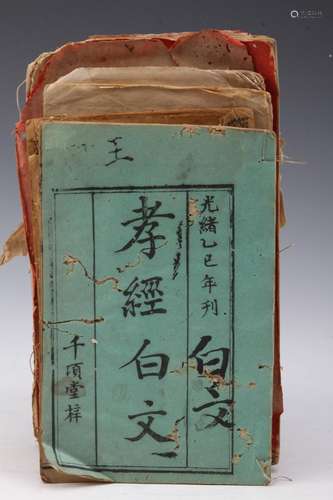 王
光緒乙巳年刊
孝經白文
白文
千頃堂梓